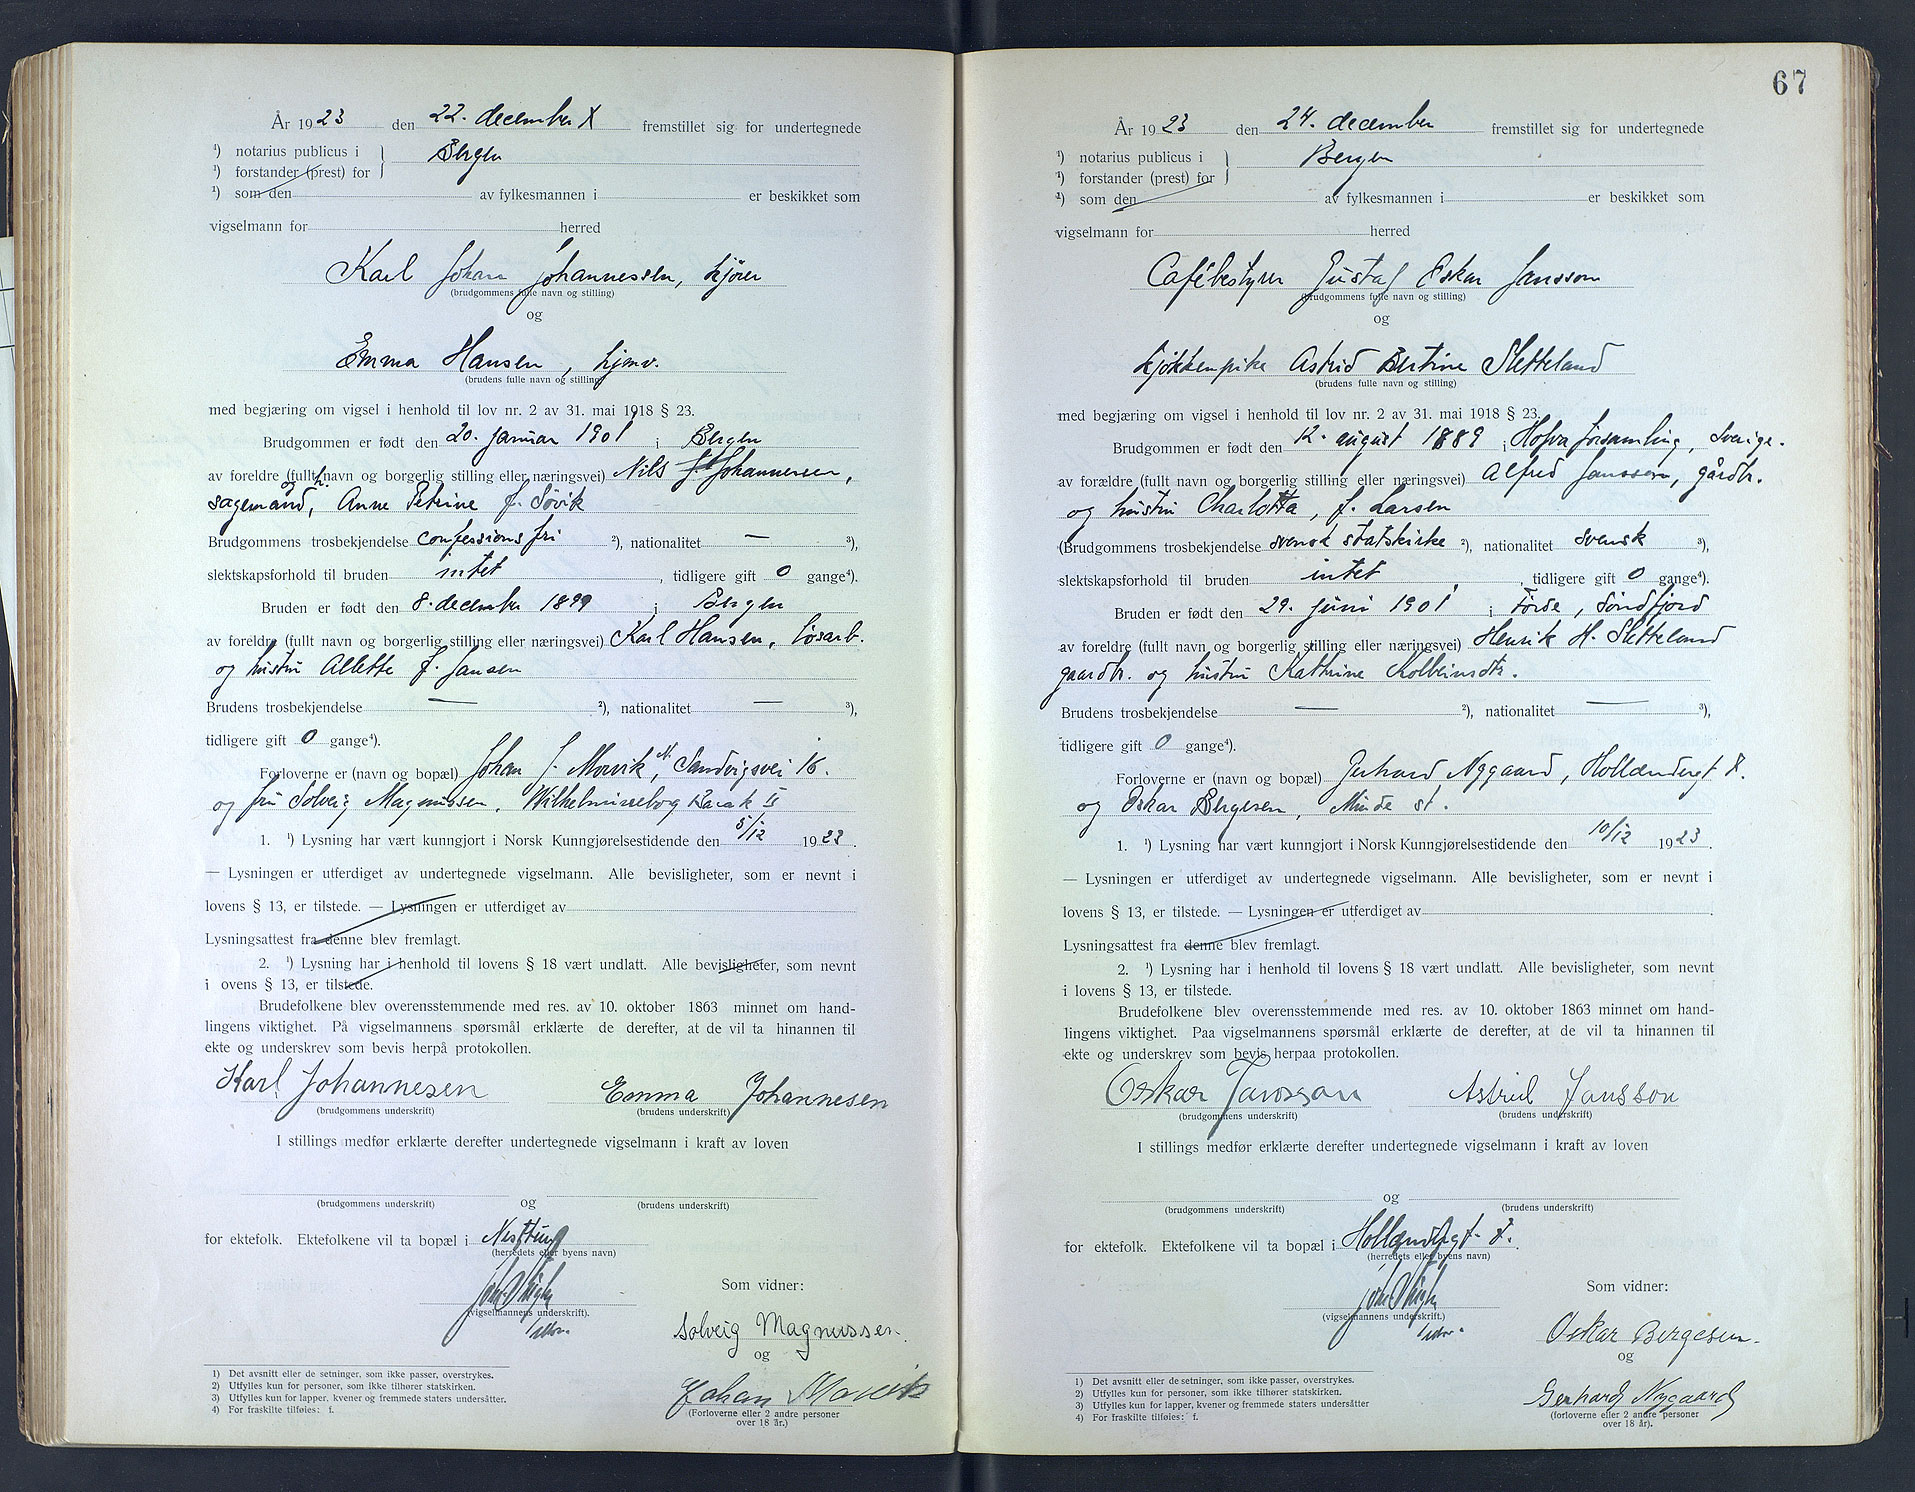 År 1923 den 22. december X fremstillet sig for undertegnede
¹) notarius publicus i Bergen
¹) forstander (prest) for
¹) som den av fylkesmannen i er beskikket som
vigselmann for herred
Karl Johan Johannessen, kjører
(brudgommens fulle navn og stilling)
og
Emma Hansen, hjmv.
(brudens fulle navn og stilling)
med begjæring om vigsel i henhold til lov nr. 2 av 31. mai 1918 § 23.
Brudgommen er født den 20. januar 1901 i Bergen
av foreldre (fullt navn og borgerlig stilling eller næringsvei) Nils Johannessen,
sagemand, og h. Anne Petrine f. Søvik
Brudgommens trosbekjendelse confessionsfri ²), nationalitet — ³),
slektskapsforhold til bruden intet, tidligere gift 0 gange⁴).
Bruden er født den 8. december 1899 i Bergen
av foreldre (fullt navn og borgerlig stilling eller næringsvei) Karl Hansen, løsarb.
og hustru Allette f. Jansen
Brudens trosbekjendelse — ²), nationalitet — ³),
tidligere gift 0 gange⁴).
Forloverne er (navn og bopæl) Johan J. Morvik, N. Sandvigsvei 16.
og fru Solveig Magnussen, Wilhelmineborg Barak II
1. ¹) Lysning har vært kunngjort i Norsk Kunngjørelsestidende den 5/12 1923.
— Lysningen er utferdiget av undertegnede vigselmann. Alle bevisligheter, som er nevnt i
lovens § 13, er tilstede. — Lysningen er utferdiget av
Lysningsattest fra denne blev fremlagt.
2. ¹) Lysning har i henhold til lovens § 18 vært undlatt. Alle bevisligheter, som nevnt
i ovens § 13, er tilstede.
Brudefolkene blev overensstemmende med res. av 10. oktober 1863 minnet om hand-
lingens viktighet. På vigselmannens spørsmål erklærte de derefter, at de vil ta hinannen til
ekte og underskrev som bevis herpå protokollen.
Karl Johannesen Emma Johannesen
(brudgommens underskrift) (brudens underskrift)
I stillings medfør erklærte derefter undertegnede vigselmann i kraft av loven
og
(brudgommens underskrift) (brudens underskrift)
for ektefolk. Ektefolkene vil ta bopæl i Nesttun
(herredets eller byens navn)
Som vidner:
(vigselmannens underskrift).
Solveig Magnussen.
og
Johan Morvik
(Forloverne eller 2 andre personer
over 18 år.)
1) Det avsnitt eller de setninger, som ikke passer, overstrykes.
2) Utfylles kun for personer, som ikke tilhører statskirken.
3) Utfylles kun for lapper, kvener og fremmede staters undersåtter.
4) For fraskilte tilføies: f.
67
År 1923 den 24. december fremstillet sig for undertegnede
¹) notarius publicus i Bergen
¹) forstander (prest) for
²) som den av fylkesmannen i er beskikket som
vigselmann for herred
Cafébestyrer Gustaf Oskar Jansson
(brudgommens fulle navn og stilling)
og
kjøkkenpike Astrid Bertine Sletteland
(brudens fulle navn og stilling)
med begjæring om vigsel i henhold til lov nr. 2 av 31. mai 1918 § 23.
Brudgommen er født den 12. august 1889 i Hofva forsamling, Sverige.
av forældre (fullt navn og borgerlig stilling eller næringsvei) Alfred Jansson, gårdbr.
og hustru Charlotta, f. Larsen
(Brudgommens trosbekjendelse svensk statskirke ²), nationalitet svensk ³),
slektskapsforhold til bruden intet, tidligere gift 0 gange⁴).
Bruden er født den 29. juni 1901 i Førde, Søndfjord
av foreldre (fullt navn og borgerlig stilling eller næringsvei) Henrik H. Sletteland
gaardbr. og hustru Kathrine Kolbeinsdtr.
Brudens trosbekjendelse — ²), nationalitet — ³),
tidligere gift 0 gange⁴).
Forloverne er (navn og bopæl) Gerhard Nygaard, Hollændergt 8.
og Oskar Bergesen, Minde st.
1. ¹) Lysning har vært kunngjort i Norsk Kunngjørelsestidende den 10/12 1923.
— Lysningen er utferdiget av undertegnede vigselmann. Alle bevisligheter, som er nevnt i
lovens § 13, er tilstede. — Lysningen er utferdiget av
Lysningsattest fra denne blev fremlagt.
2. ¹) Lysning har i henhold til lovens § 18 vært undlatt. Alle bevisligheter, som nevnt
i lovens § 13, er tilstede.
Brudefolkene blev overensstemmende med res. av 10. oktober 1863 minnet om hand-
lingens viktighet. Paa vigselmannens spørsmål erklærte de derefter, at de vil ta hinannen til
ekte og underskrev som bevis herpaa protokollen.
Oskar Jansson Astrid Jansson
(brudgommens underskrift) (brudens underskrift)
I stillings medfør erklærte derefter undertegnede vigselmann i kraft av loven
og
(brudgommens underskrift) (brudens underskrift)
for ektefolk. Ektefolkene vil ta bopæl i Hollændergt. 8.
(herredets eller byens navn)
Som vidner:
(vigselmannens underskrift.)
Oskar Bergesen.
og
Gerhard Nygaard
(forloverne eller 2 andre personer
over 18 år).
1) Det avsnitt eller de setninger, som ikke passer, overstrykes.
2) Utfylles kun for personer, som ikke tilhører statskirken.
3) Utfylles kun for lapper, kvener og fremmede staters undersåtter
4) For fraskilte tilføies: f.